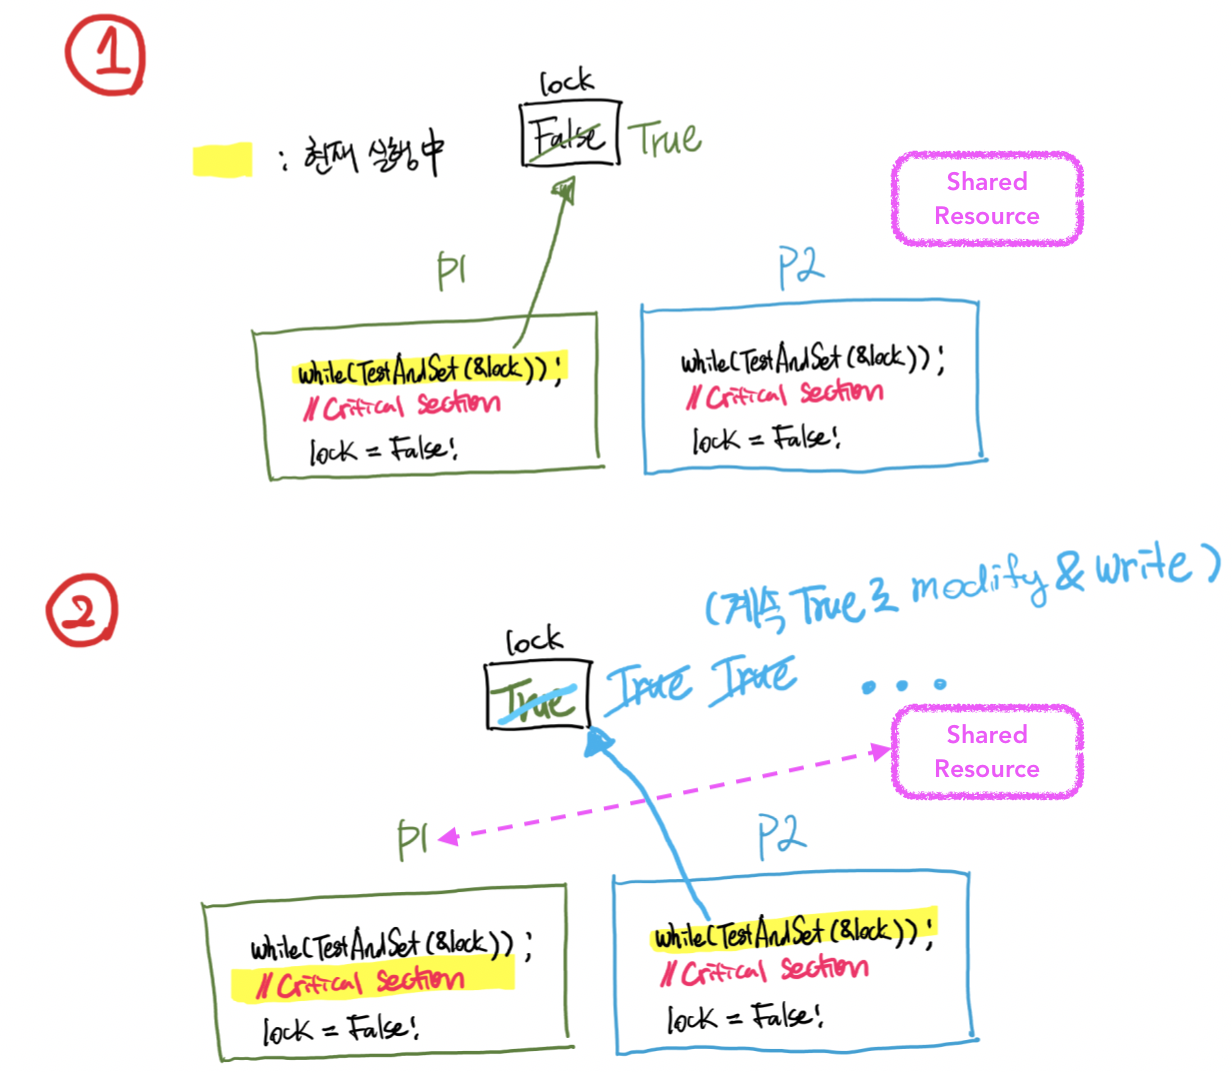 1
lock
: 현재 실행中
False True
Shared
Resource
P1
P2
while(TestAndSet(&lock));
// Critical section
lock = False;
while(TestAndSet(&lock));
// Critical section
lock = False;
2
(계속 True로 modify & write)
lock
True True True ...
Shared
Resource
P1
P2
while(TestAndSet(&lock));
// Critical section
lock = False;
while(TestAndSet(&lock));
// Critical section
lock = False;